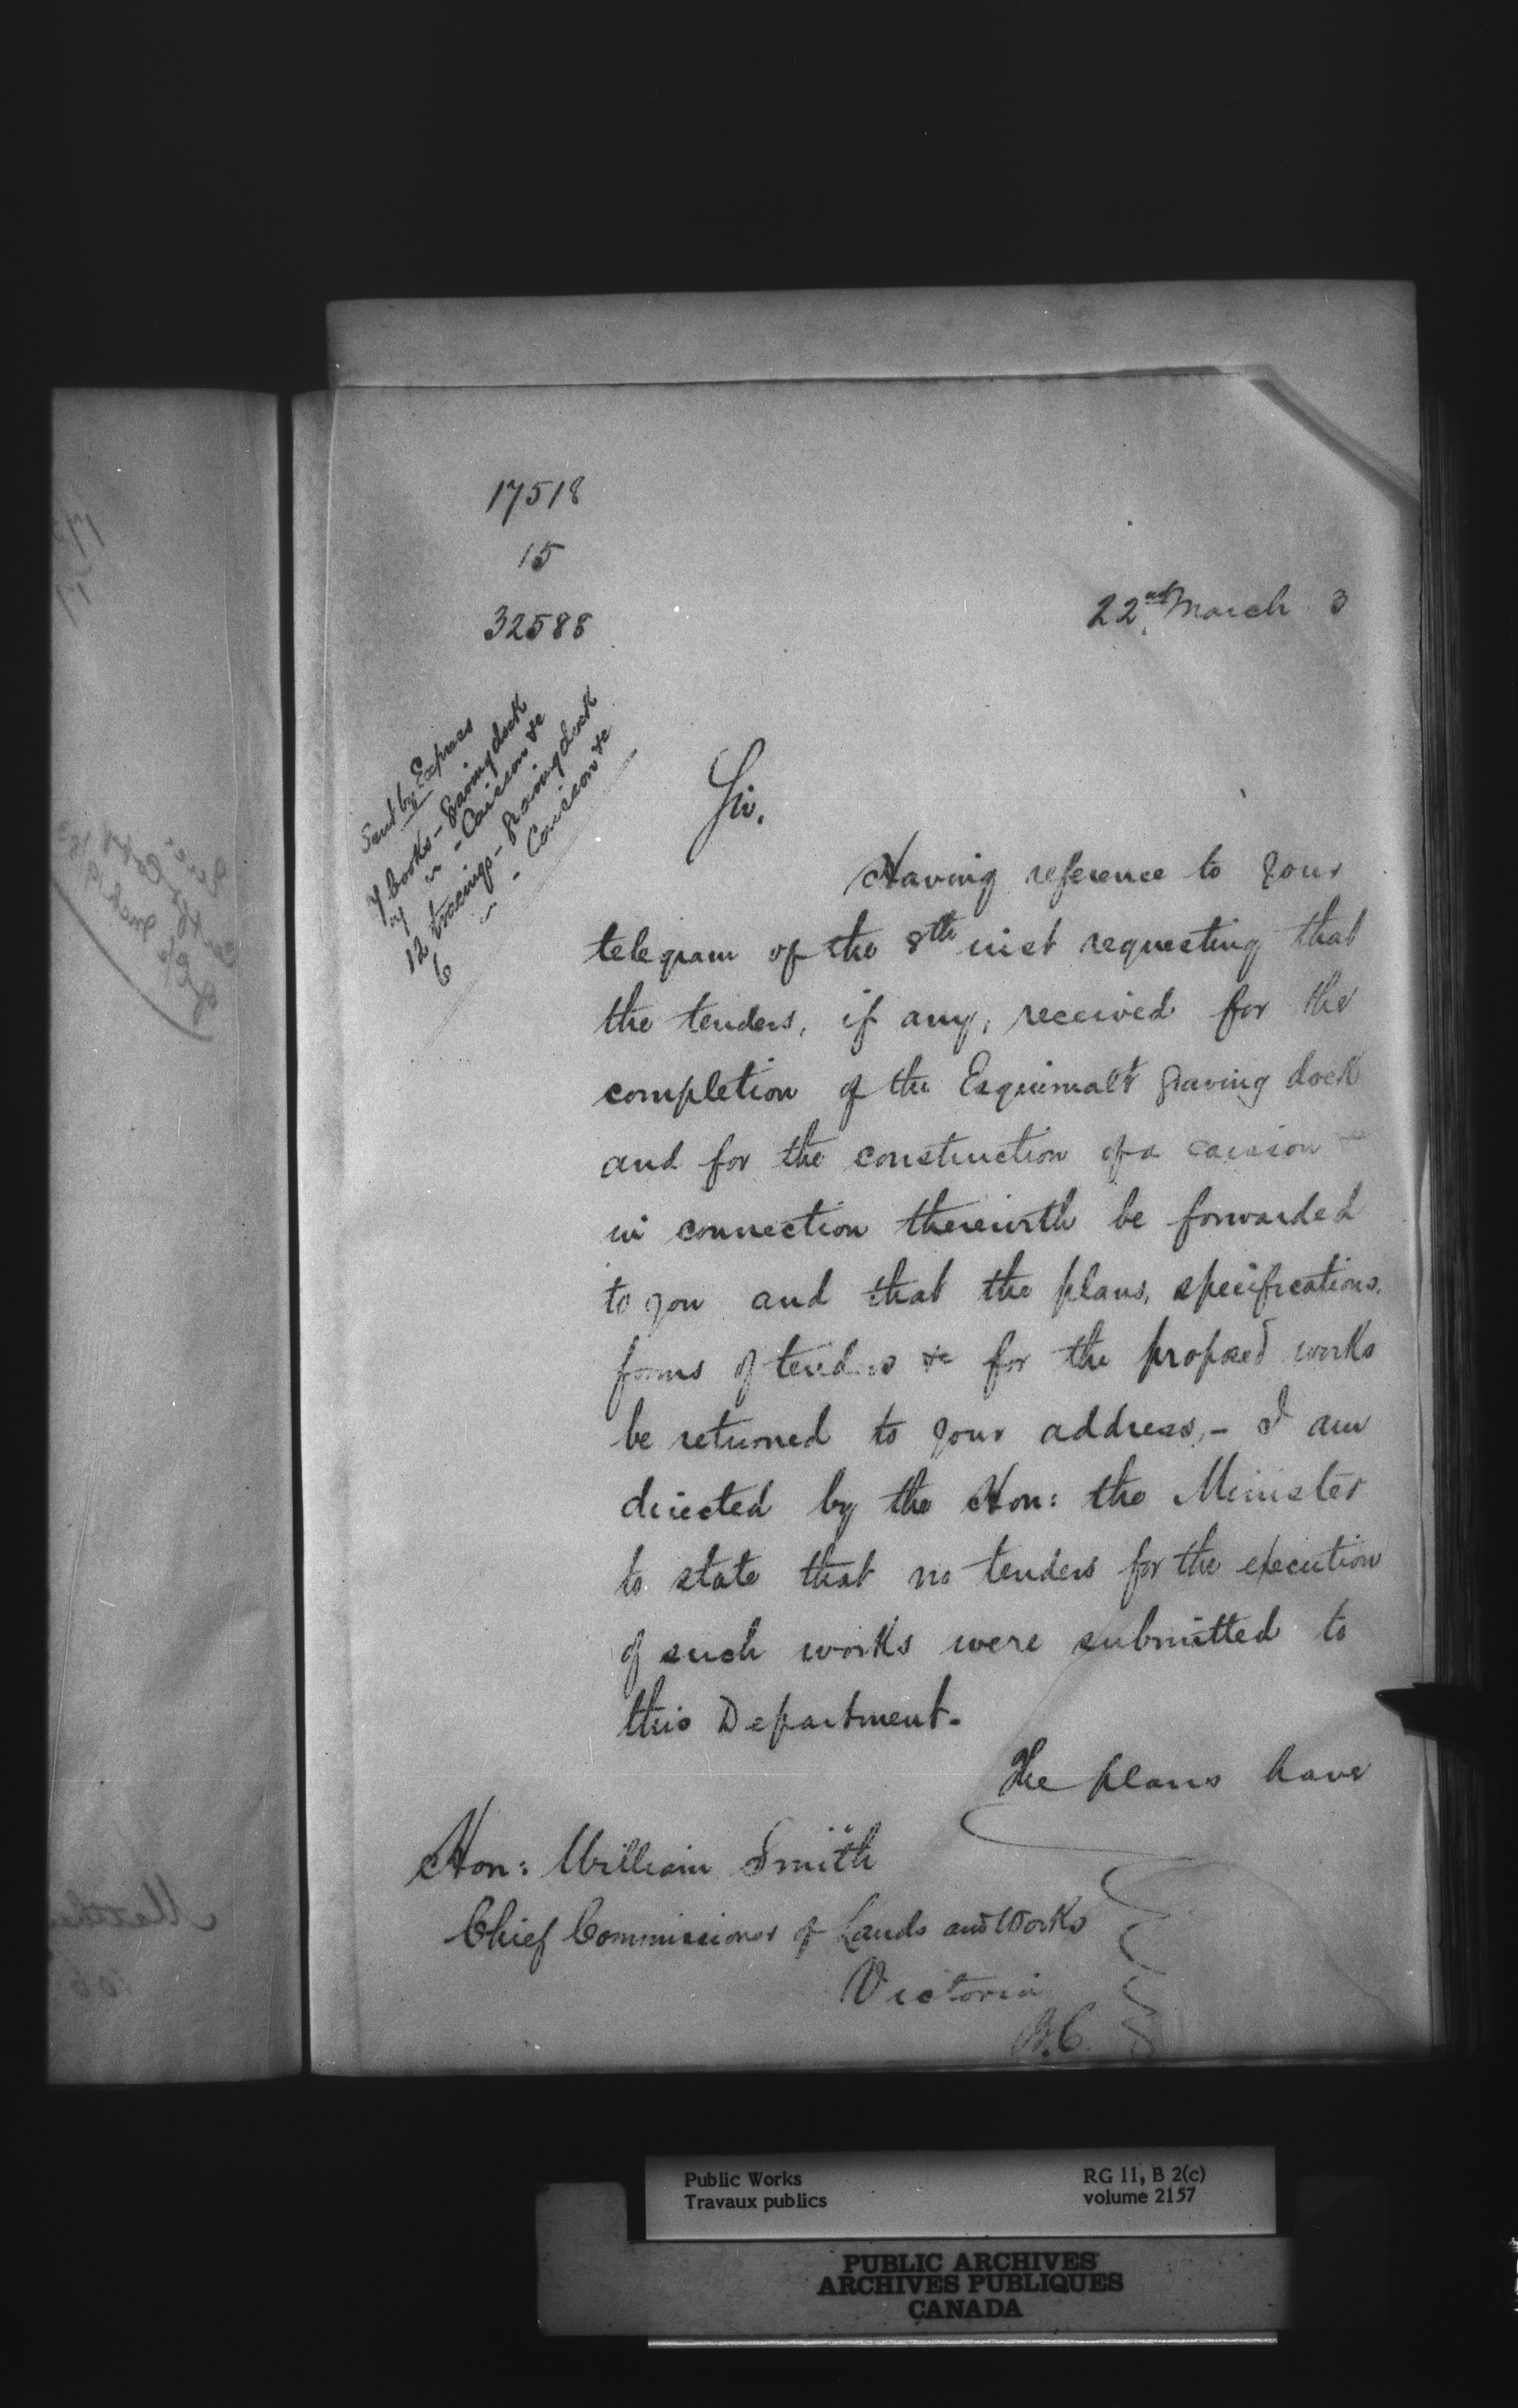 17518
15
32588
22nd March 3
Sent by Express
7 books - Graving dock
7 " - Caisson &c
12 tracings - Graving dock
6 " - Caisson &c
Sir,
Having reference to your
telegram of the 8th inst requesting that
the tenders, if any, received for the
completion of the Esquimalt graving dock
and for the construction of a caisson &c
in connection therewith be forwarded
to you and that the plans, specifications,
forms of tenders &c for the proposed works
be returned to your address, - I am
directed by the Hon: the Minister
to state that no tenders for the execution
of such works were submitted to
this Department.
The plans have
Hon: William Smith
Chief Commissioner of Lands and Works
Victoria
B.C.
Public Works
Travaux publics
RG 11, B 2(c)
volume 2157
PUBLIC ARCHIVES
ARCHIVES PUBLIQUES
CANADA